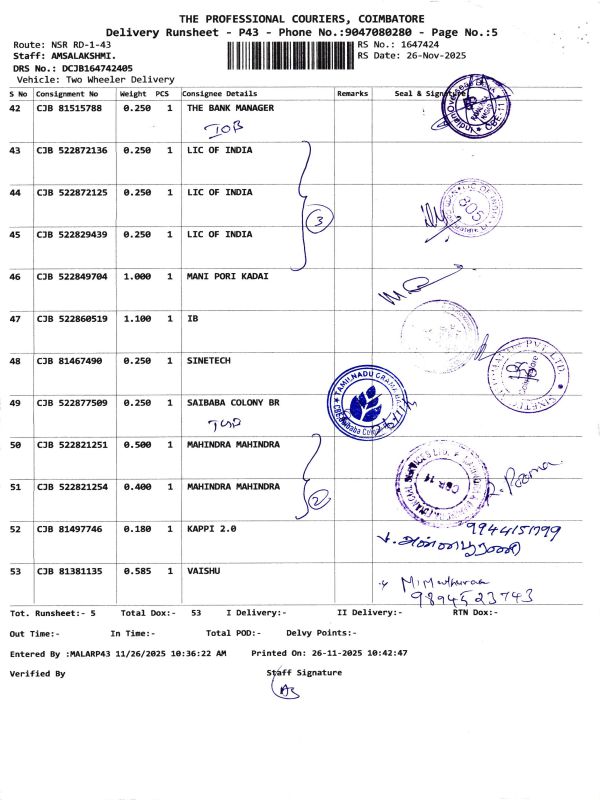 THE PROFESSIONAL COURIERS, COIMBATORE
Delivery Runsheet - P43 - Phone No.:9047080280 - Page No.:5
Route: NSR RD-1-43 RS No.: 1647424
Staff: AMSALAKSHMI. RS Date: 26-Nov-2025
DRS No.: DCJB164742405
Vehicle: Two Wheeler Delivery
S No Consignment No Weight PCS Consignee Details Remarks Seal & Signature
42 CJB 81515788 0.250 1 THE BANK MANAGER
IOB
43 CJB 522872136 0.250 1 LIC OF INDIA
44 CJB 522872125 0.250 1 LIC OF INDIA
805
3
45 CJB 522829439 0.250 1 LIC OF INDIA
46 CJB 522849704 1.000 1 MANI PORI KADAI
47 CJB 522860519 1.100 1 IB
48 CJB 81467490 0.250 1 SINETECH
49 CJB 522877509 0.250 1 SAIBABA COLONY BR
TAMILNADU GRAMA
50 CJB 522821251 0.500 1 MAHINDRA MAHINDRA
CBE 11
51 CJB 522821254 0.400 1 MAHINDRA MAHINDRA
2
52 CJB 81497746 0.180 1 KAPPI 2.0
9944151799
53 CJB 81381135 0.585 1 VAISHU
9894523743
Tot. Runsheet:- 5 Total Dox:- 53 I Delivery:- II Delivery:- RTN Dox:-
Out Time:- In Time:- Total POD:- Delvy Points:-
Entered By :MALARP43 11/26/2025 10:36:22 AM Printed On: 26-11-2025 10:42:47
Verified By Staff Signature